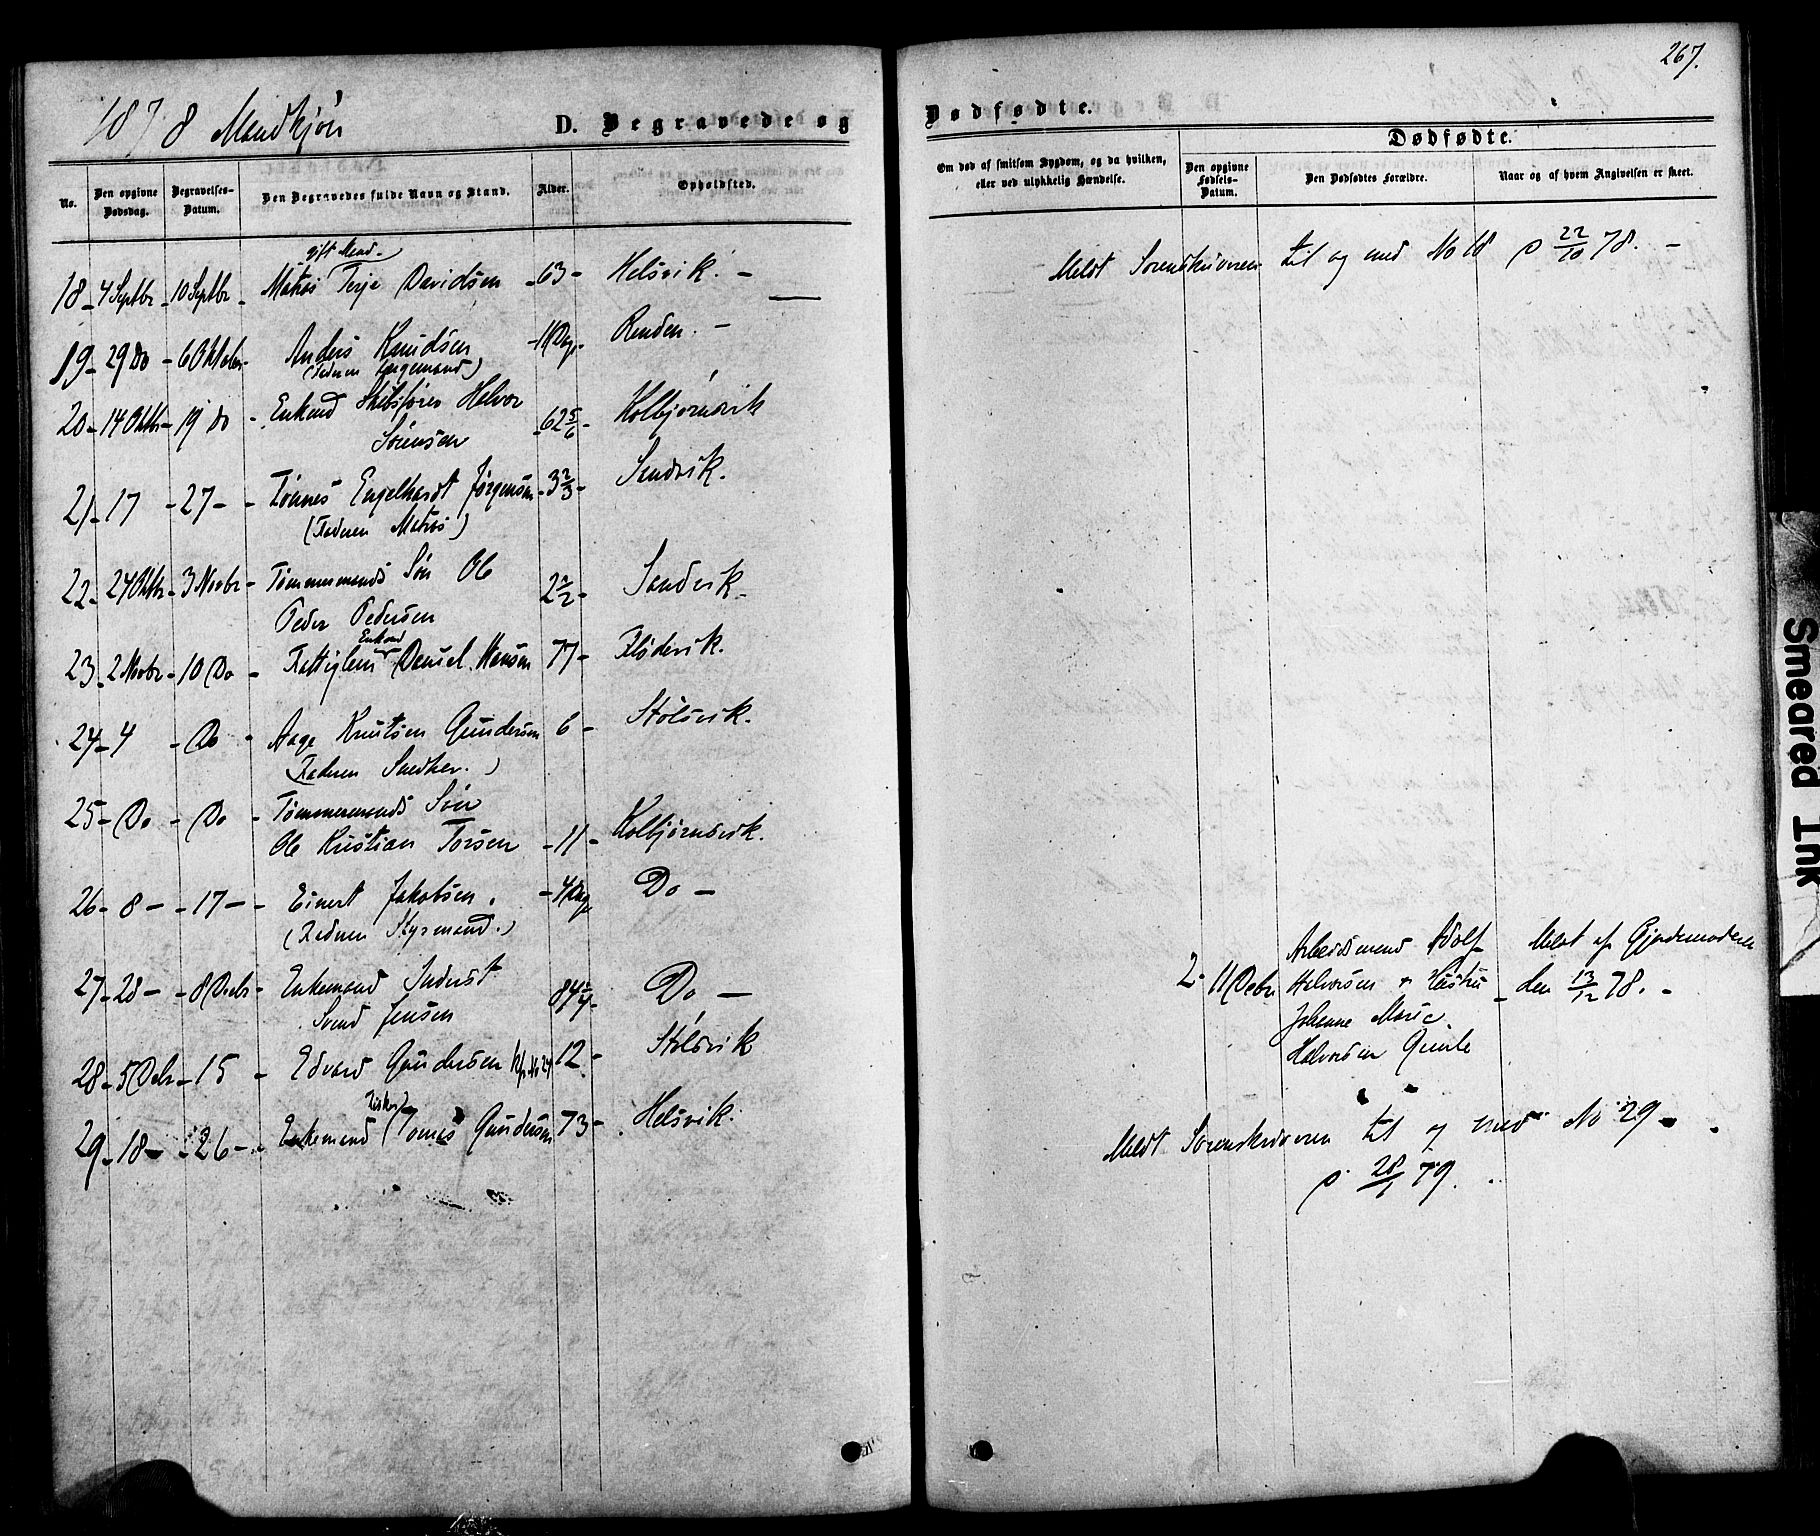 267.
1878 Mandkjøn
D. Begravede og
Dødfødte.
No.
Den opgivne Dødsdag.
Begravelses-Datum.
Den Begravedes fulde Navn og Stand.
Alder.
Opholdsted.
Om død af smitsom Sygdom, og da hvilken, eller ved ulykkelig Hændelse.
Dødfødte.
Den opgivne Fødsels-Datum.
Den Dødfødtes Forældre.
Naar og af hvem Angivelsen er skeet.
gift Mand.
18 - 4 Septbr - 10 Septbr - Matros Terje Davidsen - 63 - Helsvik. -
19 - 29 Do - 6 Oktobr - Anders Knudsen - 11 Dag. - Randen. -
20 - 14 Oktbr - 19 Do - Enkemd Skibsfører Helvor - 62 5/6 - Kolbjørnsvik
Sørensen
21 - 17 - 27 - Tønnes Engelhardt Jørgensen - 3 2/3 - Sandvik.
(Faderen Matros)
22 - 24 Oktbr - 3 Novbr - Tømmermands Søn Ole - 2 1/2 - Sandvik.
Peder Pedersen
Enkmd
23 - 2 Novbr - 10 Do - Fattiglem Daniel Hansen 77 - Flødevik.
24 - 4 - Do - Aage Knutsen Gundersen 6 - Stølsvik.
(Faderen Snedker.)
25 - Do - Do - Tømmermands Søn
Ole Kristian Torsen - 11 - Kolbjørnsvik.
26 - 8 - 17 - Einert Jakobsen. - 4 Dag Do -
(Faderen Styrmand.)
27 - 28 - 8 Decbr - Enkemand Inderst 84 1/4 - Do -
Svend Jensen
28 - 5 Decbr - 15 - Edvard Gundersen No 24 12 - Stølsvik
Fisker
29 - 18 - 26 - Enkemand Tønnes Gundersen 73 - Helsvik.
Meldt Sorenskriveren til og med No 18 p 22/10 78. -
2 - 11 Decbr
Arbeidsmand Adolf
Halvorsen og Hustru
Johanne Marie
Halvorsen
Meldt af Gjordemoderen
den 13/12 78. -
Meldt Sorenskriveren til og med No 29 -
p 28/1 79.
Smeared Ink